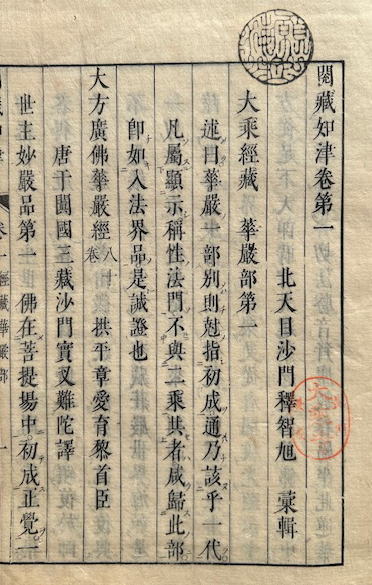 閱藏知津卷第一
北天目沙門釋智旭 彙輯
大乘經藏 華嚴部第一
述曰華嚴一部別則尅指初成通乃該乎一代
凡屬顯示稱性法門不與二乘共者咸歸此部
卽如入法界品是誠證也
大方廣佛華嚴經八十卷 拱平章愛育黎首臣
唐于闐國三藏沙門實叉難陀譯
世主妙嚴品第一 佛在菩提場中初成正覺一
卷一 經藏華嚴部 一